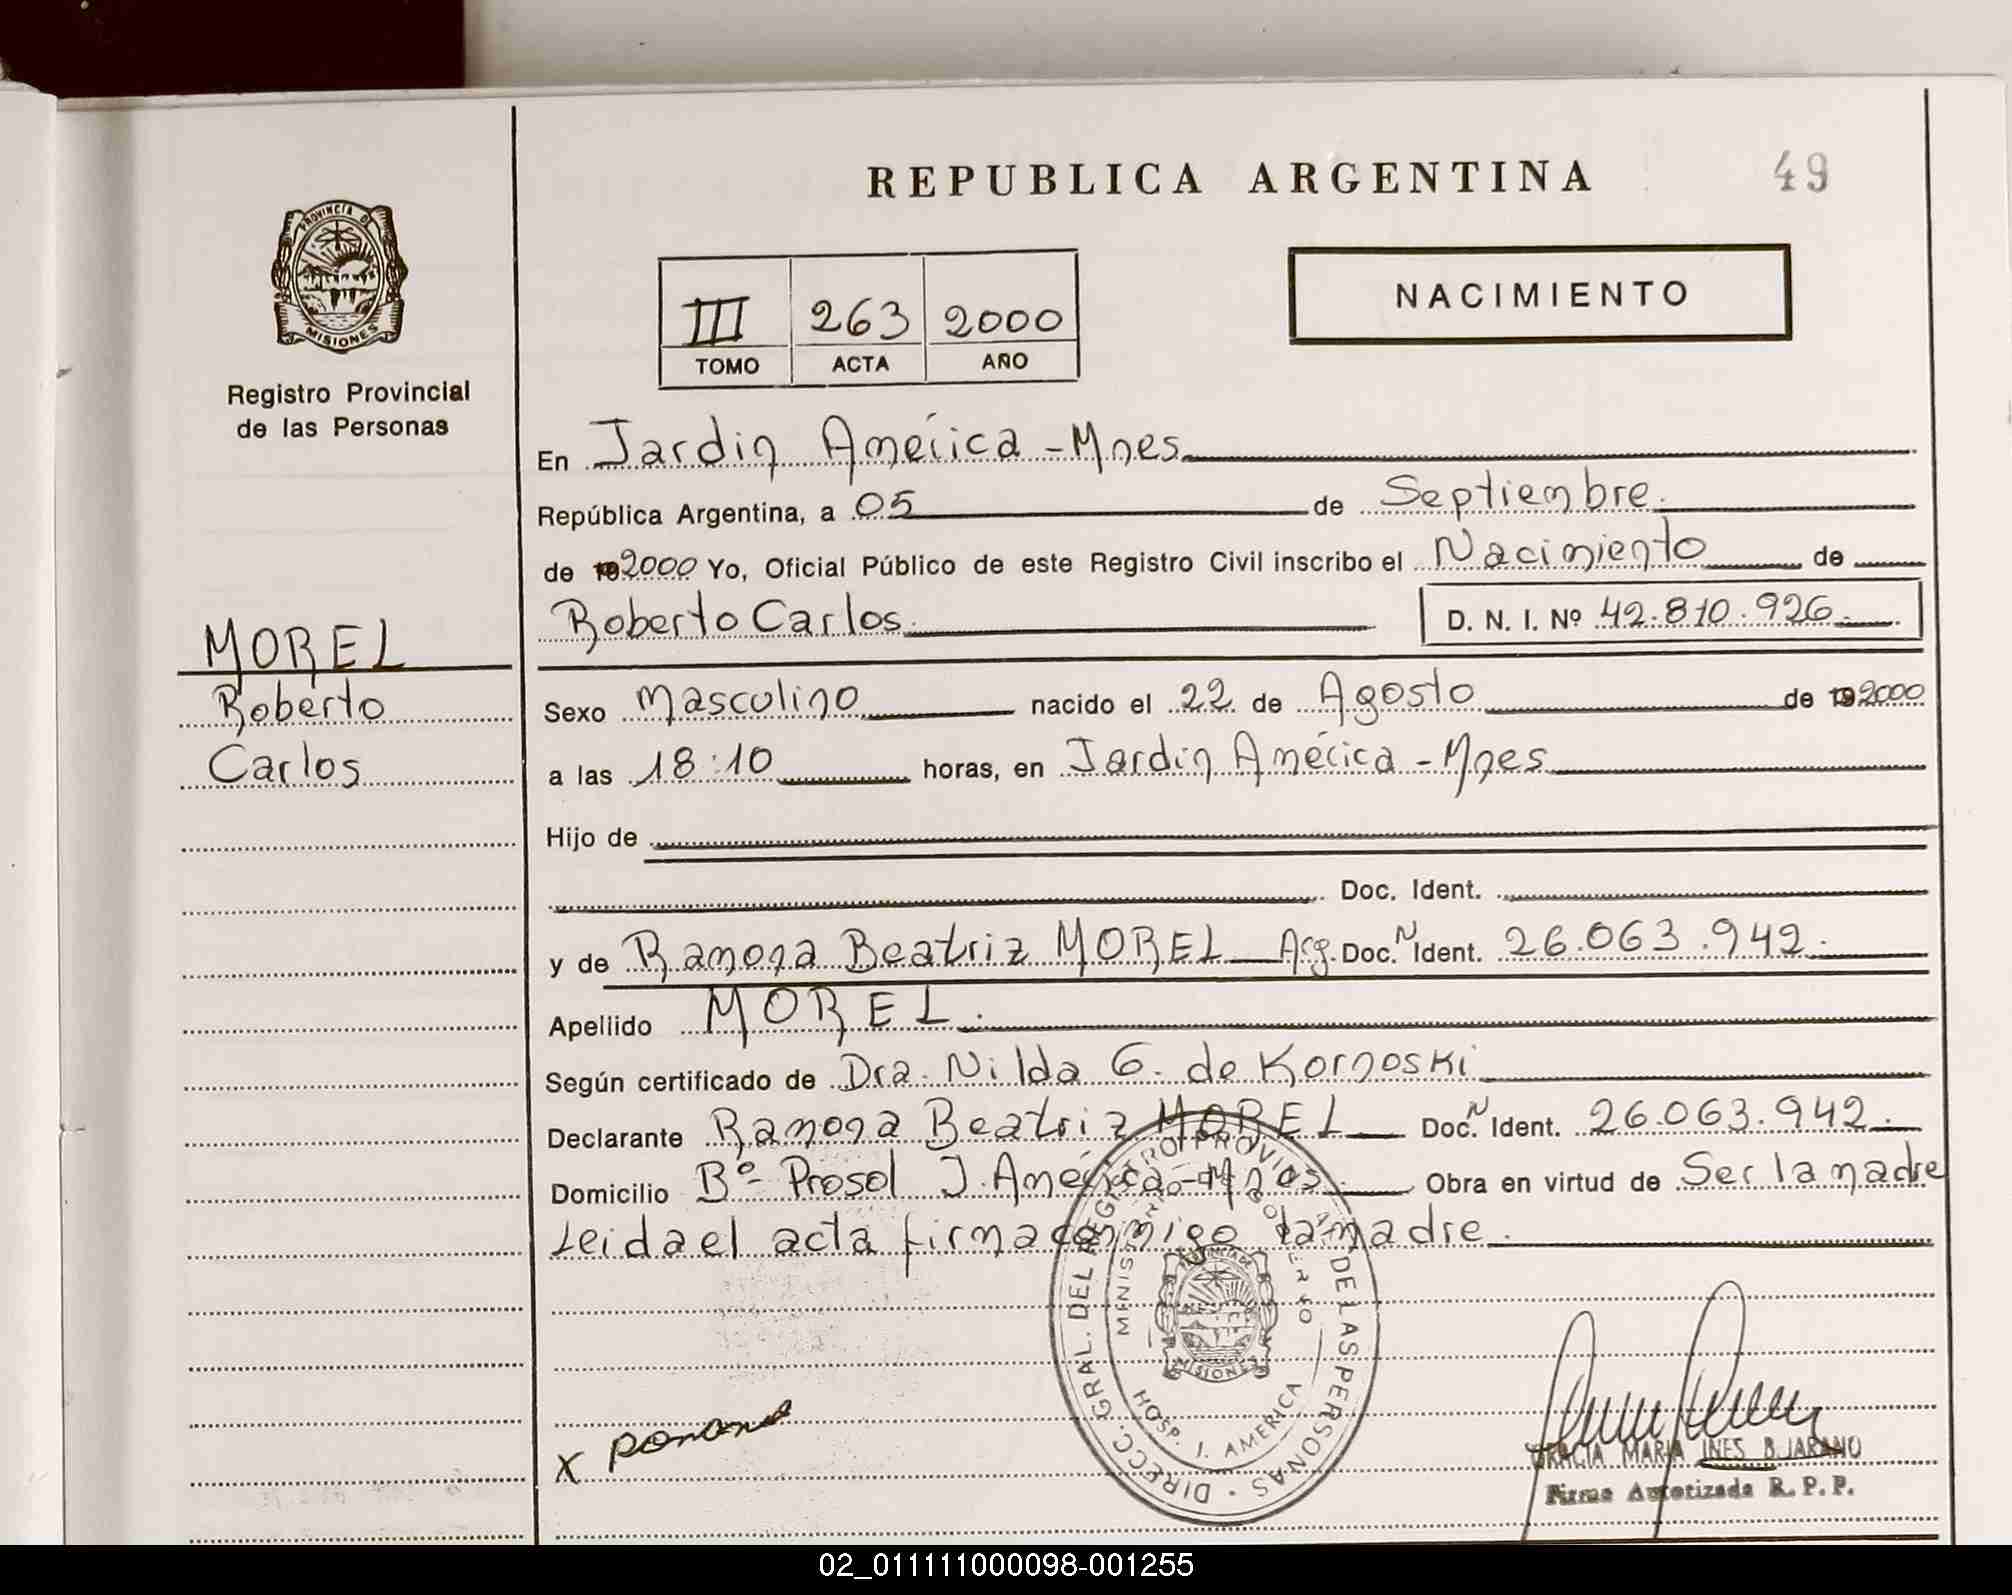 REPUBLICA ARGENTINA
49
PROVINCIA DE
MISIONES
Registro Provincial
de las Personas
III 263 2000
TOMO ACTA AÑO
NACIMIENTO
En Jardin América - Mnes
República Argentina, a 05 de Septiembre.
de 192000 Yo, Oficial Público de este Registro Civil inscribo el Nacimiento de
Roberto Carlos. D. N. I. Nº 42.810.926.
MOREL
Roberto
Carlos
Sexo Masculino nacido el 22 de Agosto de 192000
a las 18:10 horas, en Jardin América - Mnes
Hijo de
Doc. Ident.
y de Ramona Beatriz MOREL Arg. Doc. N Ident. 26.063.942.
Apellido MOREL.
Según certificado de Dra. Nilda G. de Kornoski
Declarante Ramona Beatriz MOREL Doc. N Ident. 26.063.942.
Domicilio Bº Prosol J. América - Mnes. Obra en virtud de Ser la madre
Leida el acta firma conmigo la madre.
DIRECC. GRAL. DEL REGISTRO PROVINCIAL DE LAS PERSONAS
MINISTERIO DE GOBIERNO
MISIONES
HOSP. J. AMERICA
x
GRACIA MARIA INES B. JARANO
Firma Autorizada R. P. P.
02_011111000098-001255